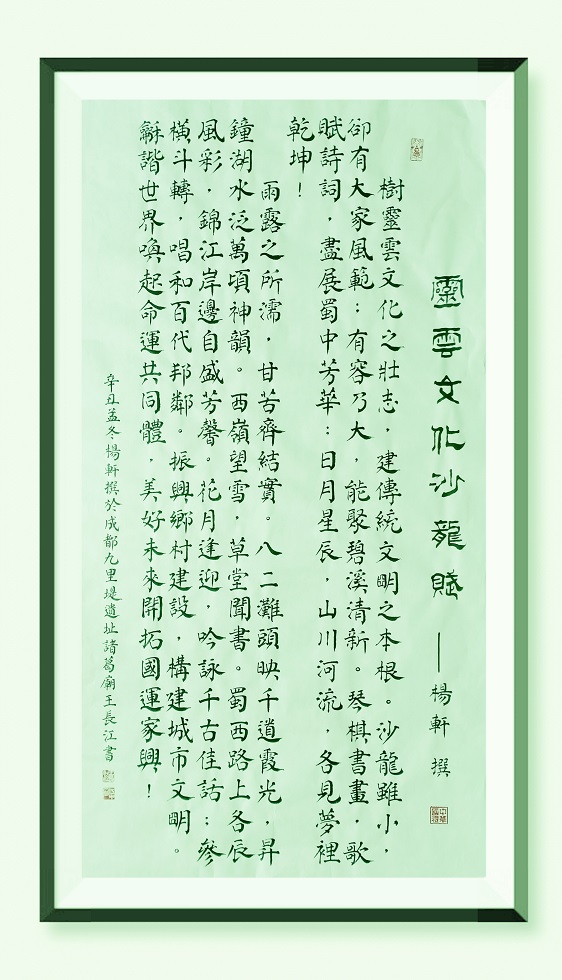 靈雲文化沙龍賦 ——楊軒 撰
樹靈雲文化之壯志，建傳統文明之本根。沙龍雖小，
郤有大家風範：有容乃大，能聚碧溪清新。琴棋書畫，歌
賦詩詞，盡展蜀中芳華：日月星辰，山川河流，各見夢裡
乾坤！
雨露之所濡，甘苦齊結實。八二灘頭映千道霞光，昇
鐘湖水泛萬頃神韻。西嶺望雪，草堂聞書。蜀西路上各辰
風彩，錦江岸邊自盛芳馨。花月逢迎，吟詠千古佳話；參
橫斗轉，唱和百代邦鄰。振興鄉村建設，構建城市文明。
龢諧世界喚起命運共同體，美好未來開拓國運家興！
辛丑孟冬楊軒撰於成都九里堤遺址諸葛廟王長江書